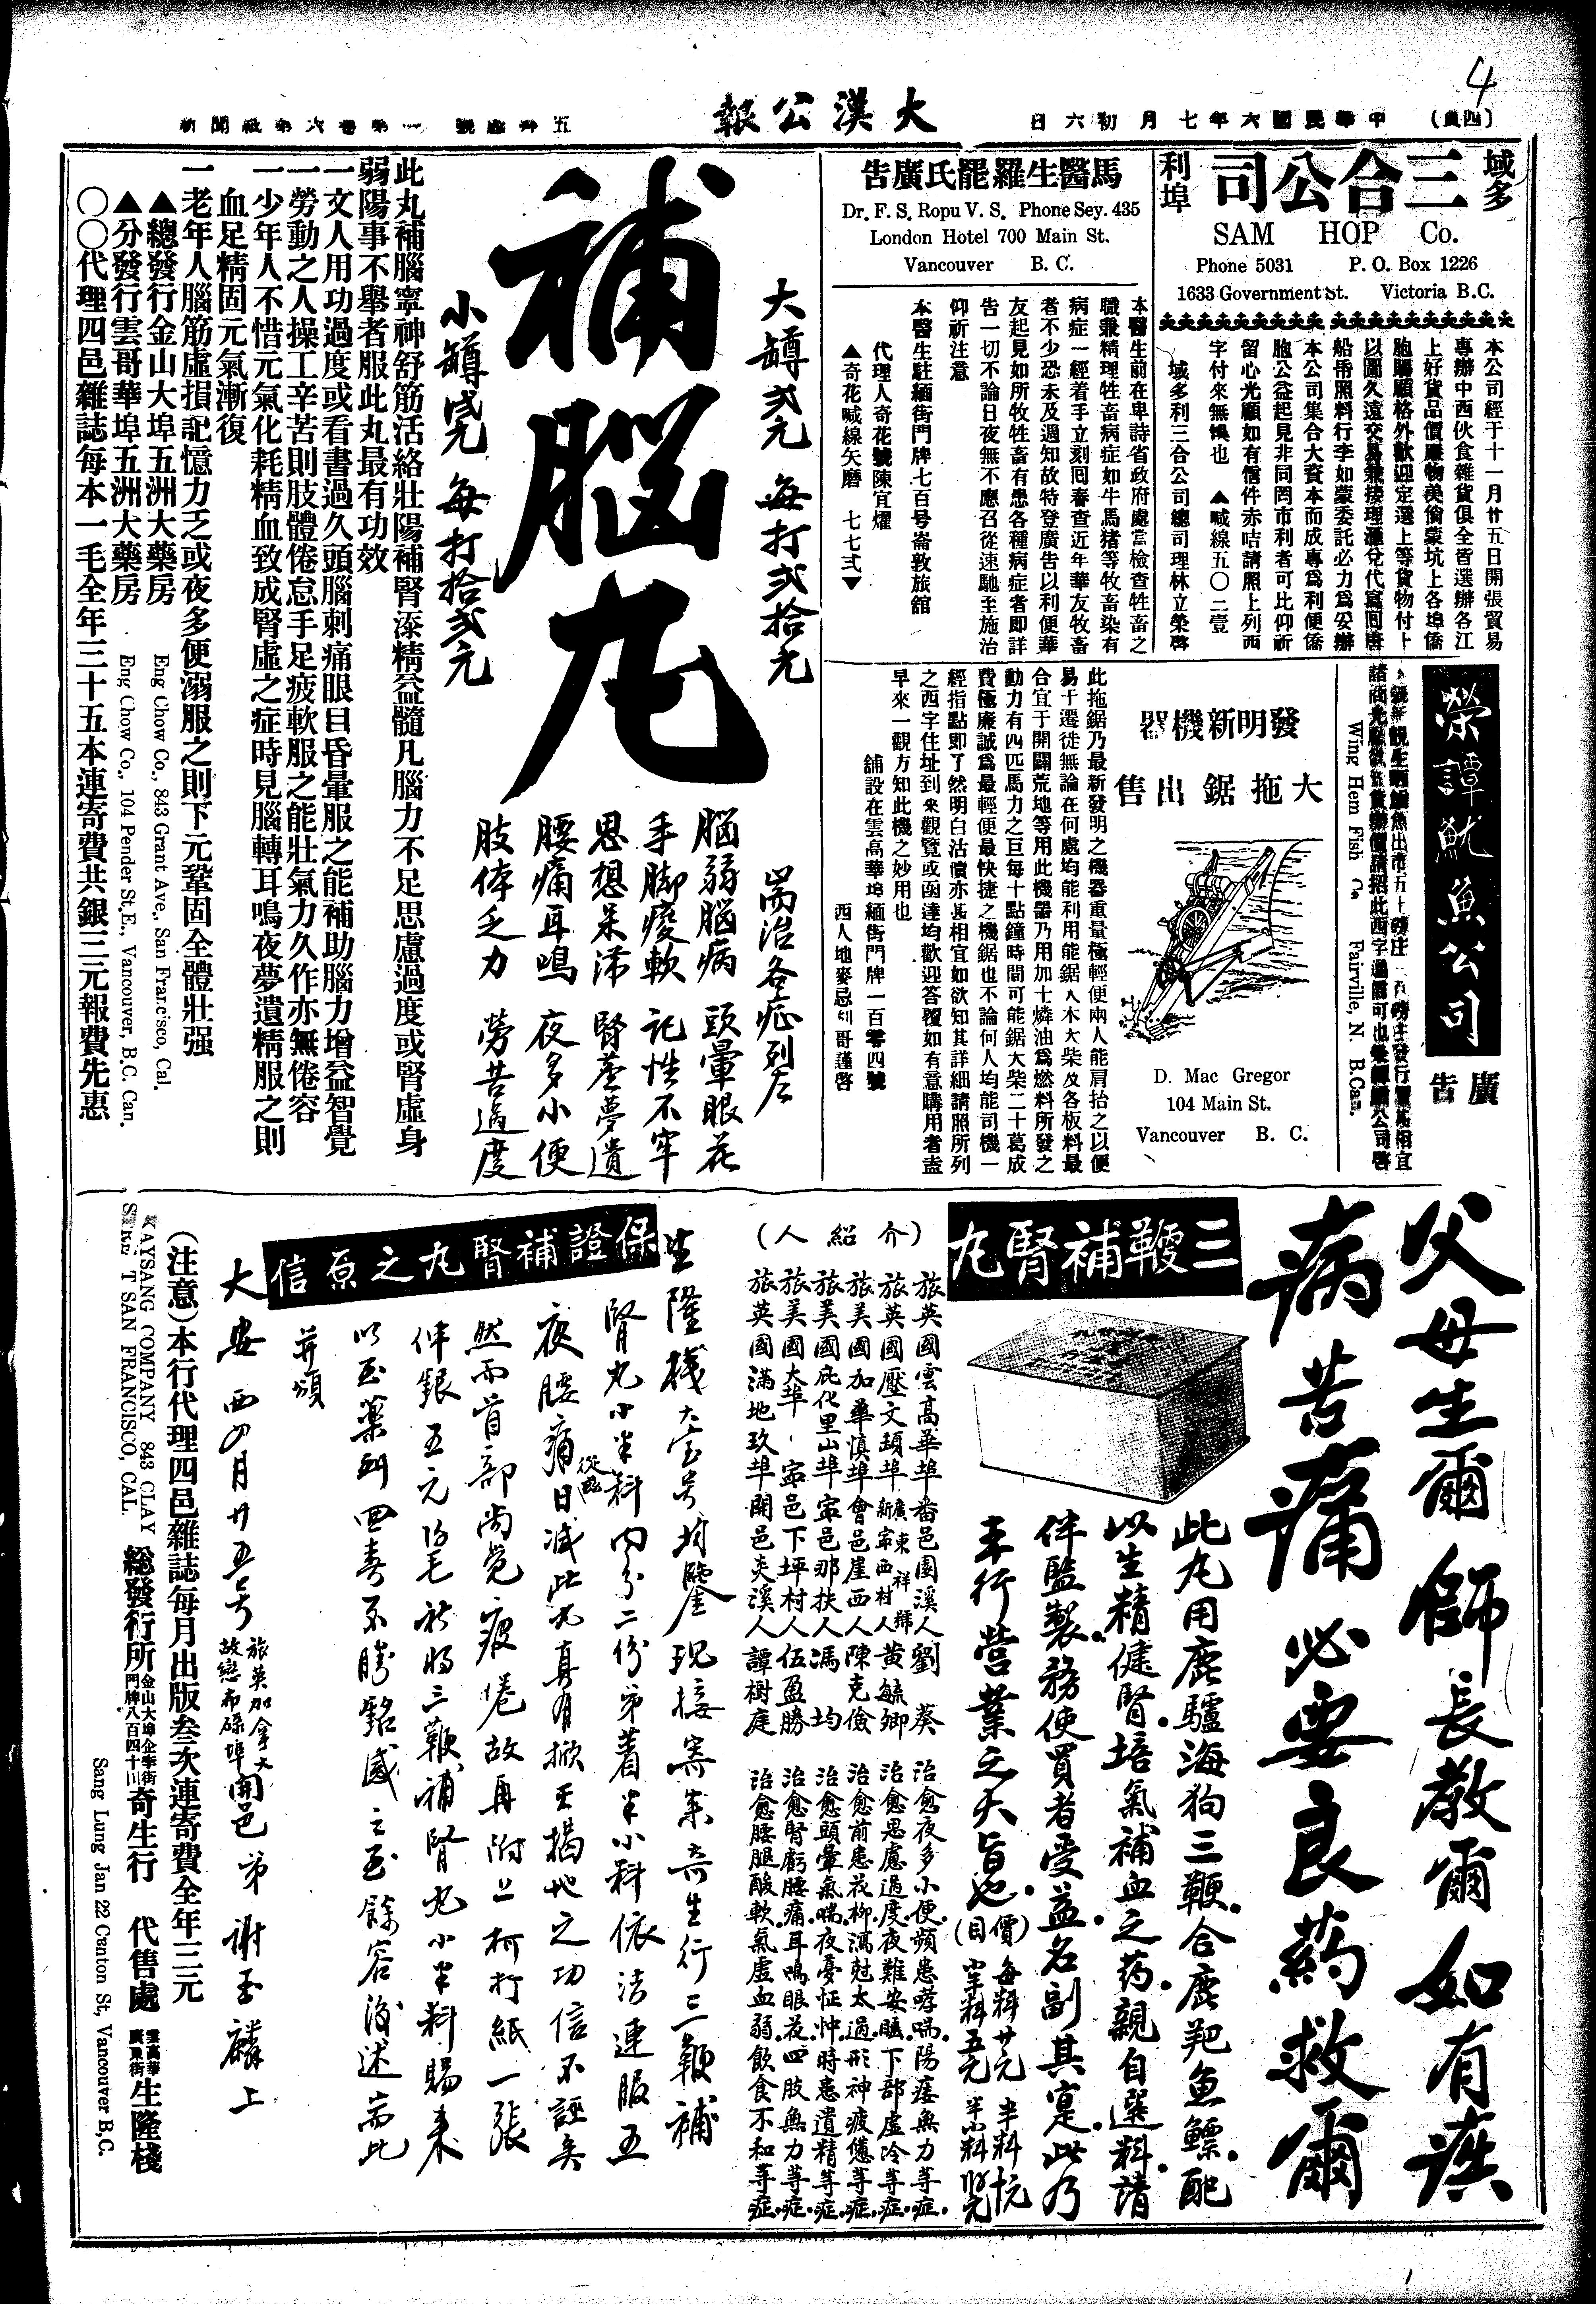 4
(四頁)
中華民國六年七月初六日
大漢公報
域多
利埠
三合公司
SAM HOP Co.
Phone 5031 P. O. Box 1226
1633 Government St. Victoria B.C.
本公司經于十一月廿五日開張貿易
專辦中西伙食雜貨俱全皆選辦各江
上好貨品價廉物美倘蒙坑上各埠僑
胞賜顧格外歡迎定選上等貨物付上
以圖久遠交易兼接理滙兌代寫回唐
船帋照料行李如蒙委託必力爲妥辦
本公司集合大資本而成專爲利便僑
胞公益起見非同罔市利者可比仰祈
留心光顧如有信件赤咭請照上列西
字付來無悞也 ▲喊線五〇二壹
域多利三合公司總司理林立榮啓
馬醫生羅罷氏廣告
Dr. F. S. Ropu V. S. Phone Sey. 435
London Hotel 700 Main St.
Vancouver B. C.
本醫生前在卑詩省政府處當檢查牲畜之
職秉精理牲畜病症如牛馬猪等牧畜染有
病症一經着手立刻囘春查近年華友牧畜
者不少恐未及週知故特登廣告以利便華
友起見如所牧牲畜有患各種病症者即詳
告一切不論日夜無不應召從速馳至施治
仰祈注意
本醫生駐緬街門牌七百号崙敦旅舘
代理人奇花號陳宜燿
▲奇花喊線矢磨 七七弍▼
榮譚魷魚公司
廣告
Wing Hem Fish Co. Fairville, N. B.Can.
發明新機器
大拖鋸出售
D. Mac Gregor
104 Main St.
Vancouver B. C.
此拖鋸乃最新發明之機器重量極輕便兩人能肩抬之以便
易于遷徙無論在何處均能利用能鋸人木大柴及各板料最
合宜于開闢荒地等用此機器乃用加士燐油爲燃料所發之
動力有四匹馬力之巨每十點鐘時間可能鋸大柴二十葛成
費極廉誠爲最輕便最快捷之機鋸也不論何人均能司機一
經指點即了然明白沽價亦甚相宜如欲知其詳細請照所列
之西字住址到來觀覽或函達均歡迎答覆如有意購用者盍
早來一觀方知此機之妙用也
舖設在雲高華埠緬街門牌一百零四號
西人地麥忌利哥謹啓
補腦丸
大罇弍元 每打弍拾元
小罇 每打拾弍元
耑治各症列左
腦弱腦病 頭暈眼花
手脚痠軟 記性不牢
思想呆滯 腎虛夢遺
腰痛耳鳴 夜多小便
肢体乏力 勞苦過度
此丸補腦寧神舒筋活絡壯陽補腎添精益髓凡腦力不足思慮過度或腎虛身
弱陽事不舉者服此丸最有功效
一文人用功過度或看書過久頭腦刺痛眼目昏暈服之能補助腦力增益智覺
一勞動之人操工辛苦則肢體倦怠手足疲軟服之能壯氣力久作亦無倦容
一少年人不惜元氣化耗精血致成腎虛之症時見腦轉耳鳴夜夢遺精服之則
血足精固元氣漸復
一老年人腦筋虛損記憶力乏或夜多便溺服之則下元鞏固全體壯强
▲總發行金山大埠五洲大藥房 Eng Chow Co., 843 Grant Ave., San Francisco, Cal.
▲分發行雲哥華埠五洲大藥房 Eng Chow Co., 104 Pender St. E., Vancouver, B.C. Can.
〇〇代理四邑雜誌每本一毛全年三十五本連寄費共銀三元報費先惠
父母生爾師長教爾如有疾
病苦痛必要良葯救爾
三鞭補腎丸
此丸用鹿驢海狗三鞭合鹿羓魚鰾配
以生精健腎培氣補血之葯親自選料請
伴監製務使買者受益名副其寔此乃
本行營業之大旨也
(價目)每料廿元 半料
(介紹人)
旅英國雲高華埠番邑圍溪人劉葵 治愈夜多小便頻患哮喘陽痿無力等症
旅英國壓文頓埠廣東新寧西村祥號人黃毓卿 治愈思慮過度夜難安睡下部虛冷等症
旅美國加華慎埠會邑崖西人陳克儉 治愈前患花柳瀉尅太過形神疲憊等症
旅美國庇化里山埠寧邑那扶人馮均 治愈頭暈氣喘夜憂怔忡時患遺精等症
旅美國大埠寧邑下坪村人伍盈勝 治愈腎虧腰痛耳鳴眼花四肢無力等症
旅英國滿地玖埠開邑夾溪人譚樹庭 治愈腰腿酸軟氣虛血弱飲食不和等症
保證補腎丸之原信
生隆棧大寶号均鑒現接寄來奇生行三鞭補
腎丸小半料內分二份弟着半小料依法連服五
夜腰痛從此日減此丸真有掀天揭地之功信不誣矣
然而首部尚覺疲倦故再附上柯打紙一張
伴銀五元伍毛祈將三鞭補腎丸小半料賜來
以至藥到回春不勝銘感之至餘容後述耑此
并頌
大安 西四月廿五号 旅英加拿大故戀布碌埠開邑弟謝玉麟上
(注意)本行代理四邑雜誌每月出版叁次連寄費全年三元
KAYSANG COMPANY 843 CLAY
STREET SAN FRANCISCO, CAL.
総發行所金山大埠企李街門牌八百四十三奇生行 代售處雲高華廣東街生隆棧
Sang Lung Jan 22 Canton St, Vancouver B,C.